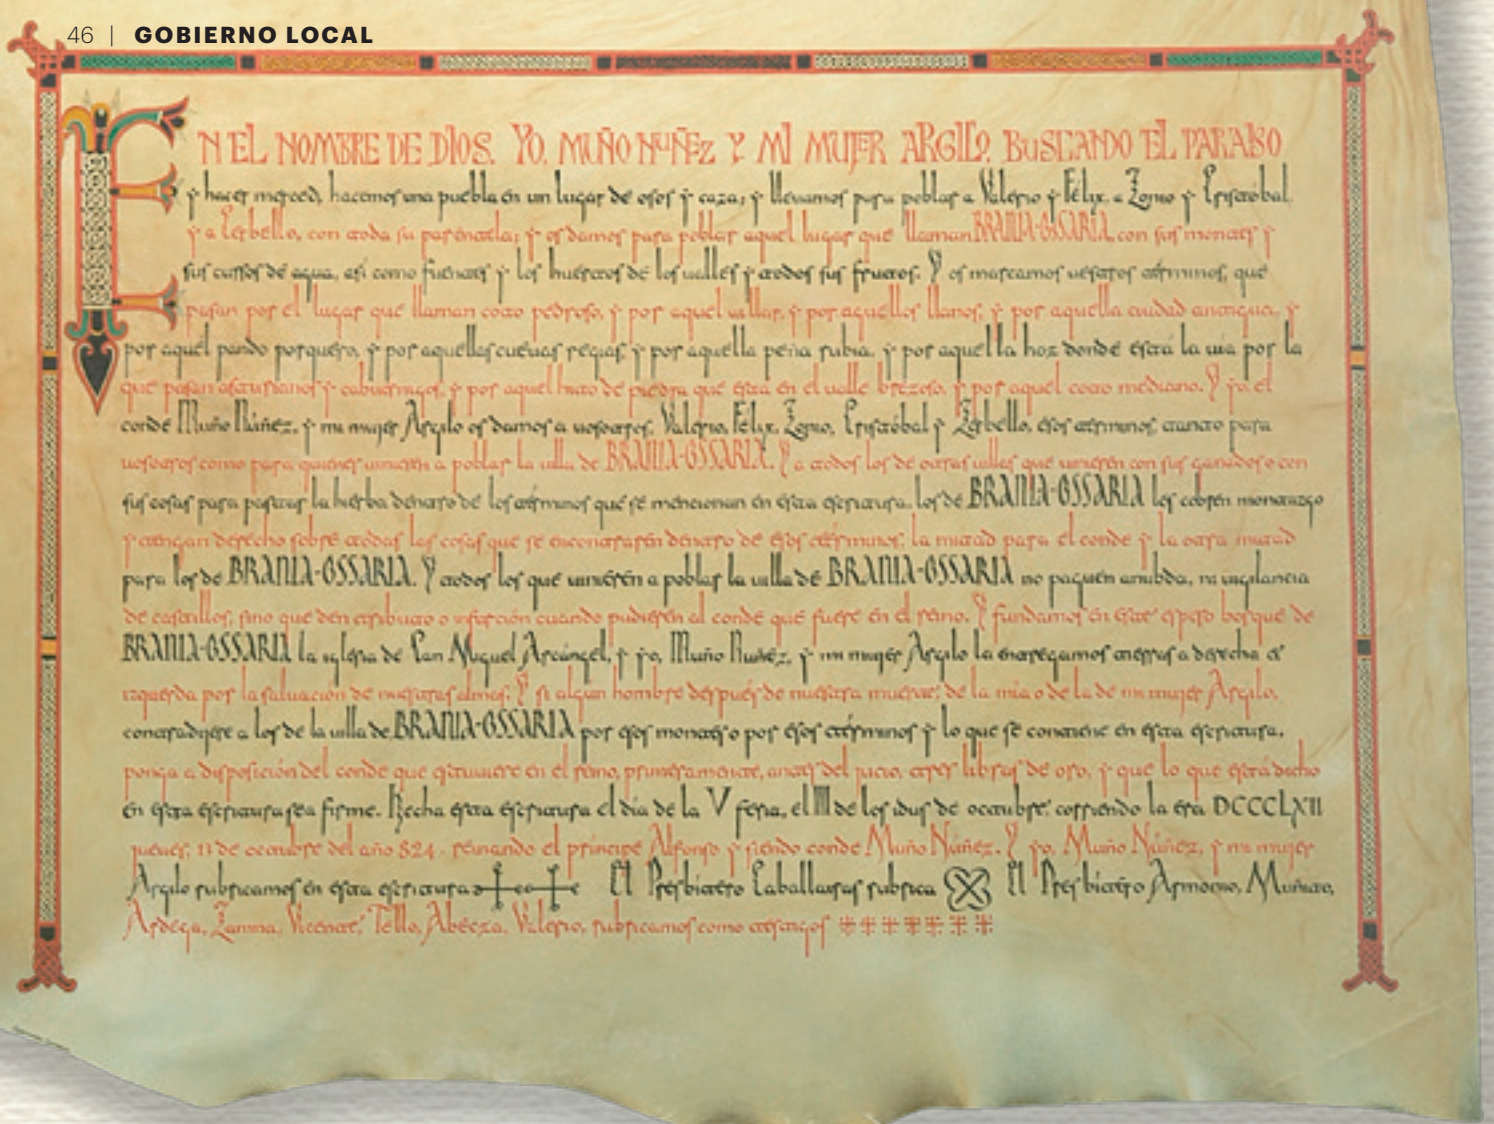 46 | GOBIERNO LOCAL
EN EL NOMBRE DE DIOS. YO, MUÑO NUÑEZ Y MI MUJER ARGILO, BUSCANDO EL PARAISO
y hacer merced, hacemos una puebla en un lugar de osos y caza; y llevamos para poblar a Valerio y Félix, a Zonio y Cristóbal,
y a Zerbello, con toda su parentela; y os damos para poblar aquel lugar que llaman BRANIA-OSSARIA, con sus montes y
sus cursos de agua, así como fuentes y los huertos de los valles y todos sus frutos. Y os marcamos vuestros términos, que
pasan por el lugar que llaman coto pedroso, y por aquel villar, y por aquellos llanos, y por aquella ciudad antigua, y
por aquel pando porquero, y por aquellas cuevas regias, y por aquella peña rubia, y por aquella hoz donde está la vía por la
que pasan asturianos y cabuérnigos, y por aquel hito de piedra que está en el valle brezoso, y por aquel coto mediano. Y yo, el
conde Muño Núñez, y mi mujer Argilo os damos a vosotros, Valerio, Félix, Zonio, Cristóbal y Zerbello, esos términos, tanto para
vosotros como para quienes vinieren a poblar la villa de BRANIA-OSSARIA. Y a todos los de otras villas que vinieren con sus ganados o con
sus cosas para pastar la hierba dentro de los términos que se mencionan en esta escritura, los de BRANIA-OSSARIA les cobren montazgo
y tengan derecho sobre todas las cosas que se encontraren dentro de esos términos, la mitad para el conde y la otra mitad
para los de BRANIA-OSSARIA. Y todos los que vinieren a poblar la villa de BRANIA-OSSARIA no paguen anubda, ni vigilancia
de castillos, sino que den tributo o infurción cuando pudieren al conde que fuere en el reino. Y fundamos en este espeso bosque de
BRANIA-OSSARIA la iglesia de San Miguel Arcángel, y yo, Muño Nuñez, y mi mujer Argilo la entregamos tierras a derecha e
izquierda por la salvación de nuestras almas. Y si algún hombre después de nuestra muerte, de la mía o de la de mi mujer Argilo,
contradijere a los de la villa de BRANIA-OSSARIA por esos montes o por esos términos y lo que se contiene en esta escritura,
ponga a disposición del conde que estuviere en el reino, primeramente, antes del juicio, tres libras de oro, y que lo que está dicho
en esta escritura sea firme. Hecha esta escritura el día de la V feria, el III de los idus de octubre, corriendo la era DCCCLXII
jueves, 13 de octubre del año 824, reinando el príncipe Alfonso y siendo conde Muño Núñez. Y yo, Muño Núñez, y mi mujer
Argilo rubricamos en esta escritura El Presbítero Caballarias rubrica El Presbítero Armonio, Muñito,
Ardega, Zamna, Vicente, Tello, Abecza, Valerio, rubricamos como testigos